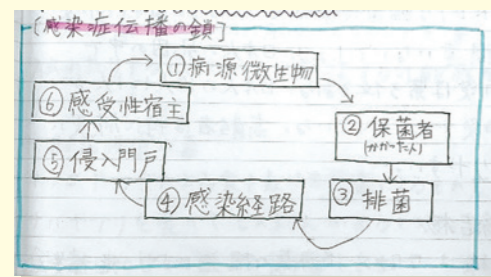 [感染症伝播の鎖]
①病源微生物
②保菌者
(かかった人)
③排菌
④感染経路
⑤侵入門戸
⑥感受性宿主